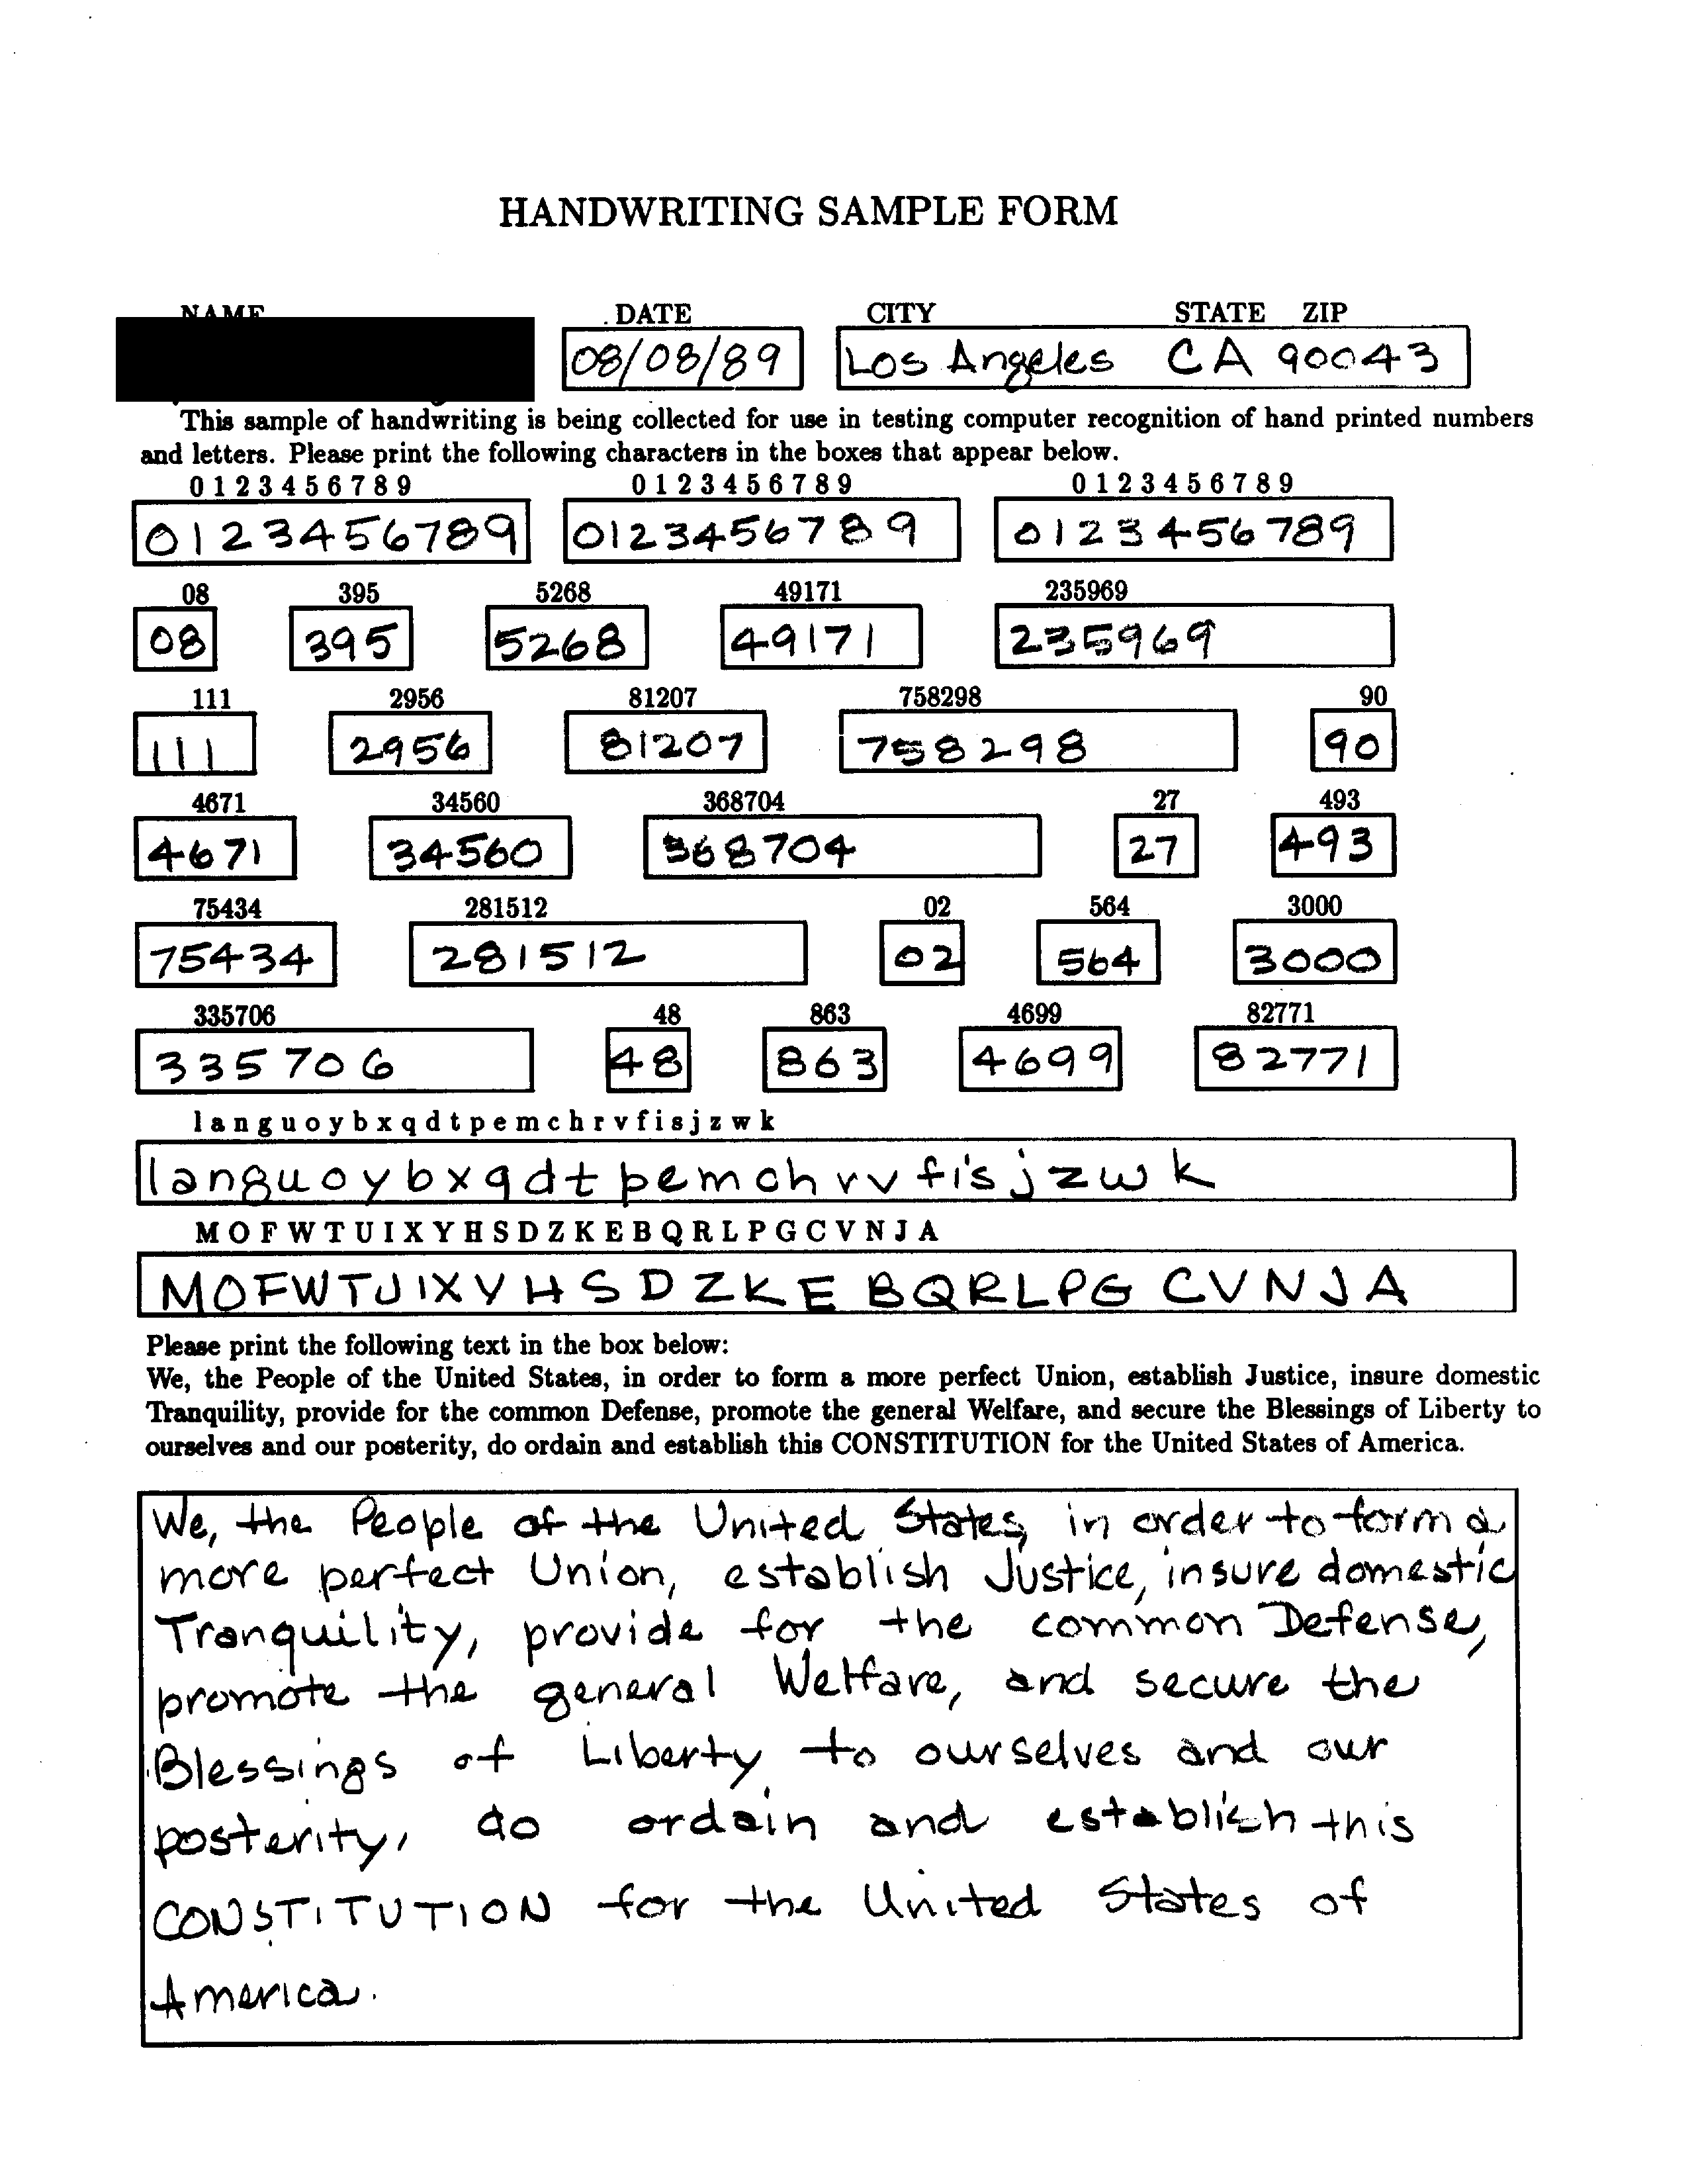 HANDWRITING SAMPLE FORM
NAME DATE CITY STATE ZIP
08/08/89 Los Angeles CA 90043
This sample of handwriting is being collected for use in testing computer recognition of hand printed numbers
and letters. Please print the following characters in the boxes that appear below.
0 1 2 3 4 5 6 7 8 9 0 1 2 3 4 5 6 7 8 9 0 1 2 3 4 5 6 7 8 9
0123456789 0123456789 0123456789
08 395 5268 49171 235969
08 395 5268 49171 235969
111 2956 81207 758298 90
111 2956 81207 758298 90
4671 34560 368704 27 493
4671 34560 368704 27 493
75434 281512 02 564 3000
75434 281512 02 564 3000
335706 48 863 4699 82771
335706 48 863 4699 82771
l a n g u o y b x q d t p e m c h r v f i s j z w k
l a n g u o y b x q d t p e m c h r v f i s j z w k
M O F W T U I X Y H S D Z K E B Q R L P G C V N J A
M O F W T U I X Y H S D Z K E B Q R L P G C V N J A
Please print the following text in the box below:
We, the People of the United States, in order to form a more perfect Union, establish Justice, insure domestic
Tranquility, provide for the common Defense, promote the general Welfare, and secure the Blessings of Liberty to
ourselves and our posterity, do ordain and establish this CONSTITUTION for the United States of America.
We, the People of the United States, in order to form a
more perfect Union, establish Justice, insure domestic
Tranquility, provide for the common Defense,
promote the general Welfare, and secure the
Blessings of Liberty to ourselves and our
posterity, do ordain and establish this
CONSTITUTION for the United States of
America.